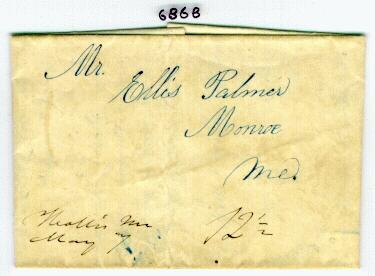 6868
Mr.
Ellis Palmer
Monroe
Me.
Me
May 7 12½